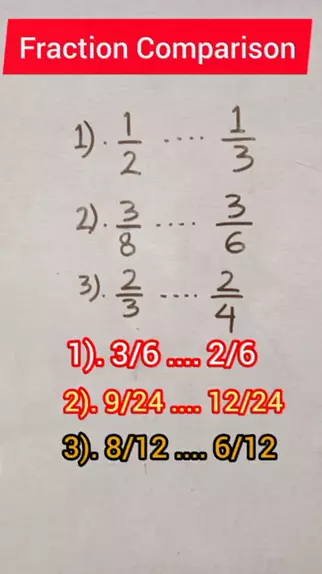 Fraction Comparison
1). 1/2 .... 1/3
2). 3/8 .... 3/6
3). 2/3 .... 2/4
1). 3/6 .... 2/6
2). 9/24 .... 12/24
3). 8/12 .... 6/12